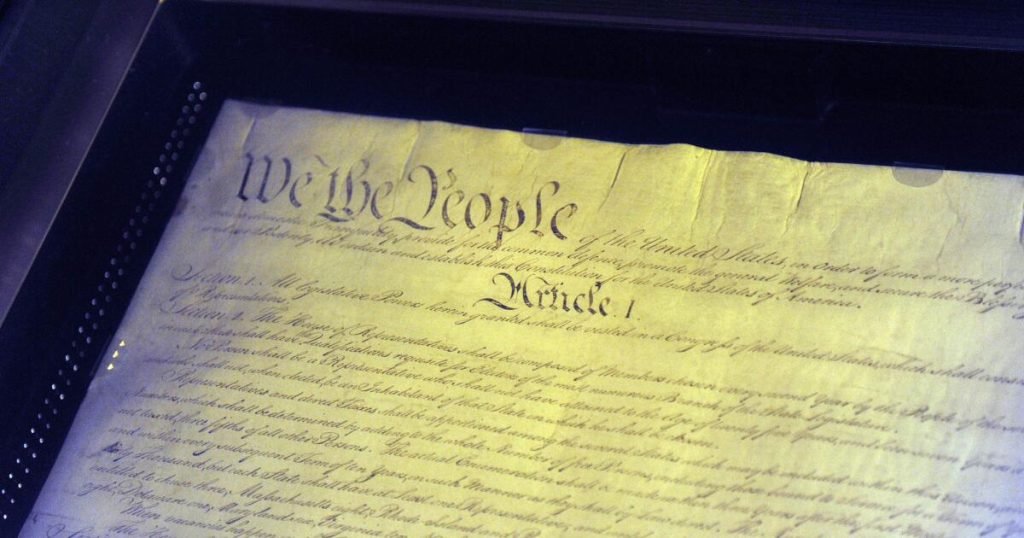 We the People of the United States, in Order to form a more perfect
insure domestic Tranquility, provide for the common defence, promote the general Welfare, and secure the Blessings of
and our Posterity, do ordain and establish this Constitution for the United States of America.
Article. I.
Section. 1. All legislative Powers herein granted shall be vested in a Congress of the United States, which shall consist
of Representatives.
Section. 2. The House of Representatives shall be composed of Members chosen every second Year by the People of the
in each State shall have the Qualifications requisite for Electors of the most numerous Branch of the State Legislature.
No Person shall be a Representative who shall not have attained to the Age of twenty five Years, and been seven Years a
and who shall not, when elected, be an Inhabitant of that State in which he shall be chosen.
Representatives and direct Taxes shall be apportioned among the several States which may be included within this Union, according
Numbers, which shall be determined by adding to the whole Number of free Persons, including those bound to Service for a Term of
not taxed, three fifths of all other Persons. The actual Enumeration shall be made within three Years after the first
and within every subsequent Term of ten Years, in such Manner as they shall by Law direct. The
thirty Thousand, but each State shall have at Least one Representative; and
entitled to chuse three, Massachusetts eight, Rhode-Island and
eight, Delaware one, Maryland six, Virginia ten
When vacancies happen